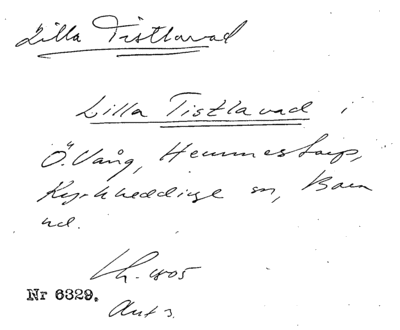 Lilla Tistlavad
Lilla Tistlavad i
Ö. Vång, Hemmestorp,
Kyrkheddinge sn, Bara
hd.
Lh. 1805
Nr 6329.
Akt 3.